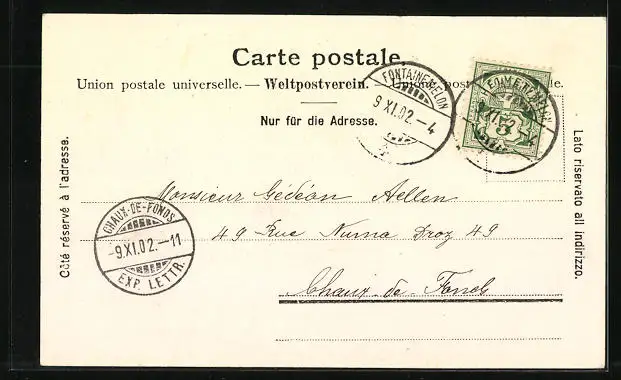 Carte postale.
Union postale universelle. — Weltpostverein. — Union
Nur für die Adresse.
FONTAINEMELON
9 XI.02.–4
5
Côté réservé à l'adresse.
Lato riservato all indirizzo.
Monsieur Gédéon Aellen
49 Rue Numa Droz 49
Chaux de Fonds
CHAUX-DE-FONDS
–9.XI.02.–11
EXP. LETTR.